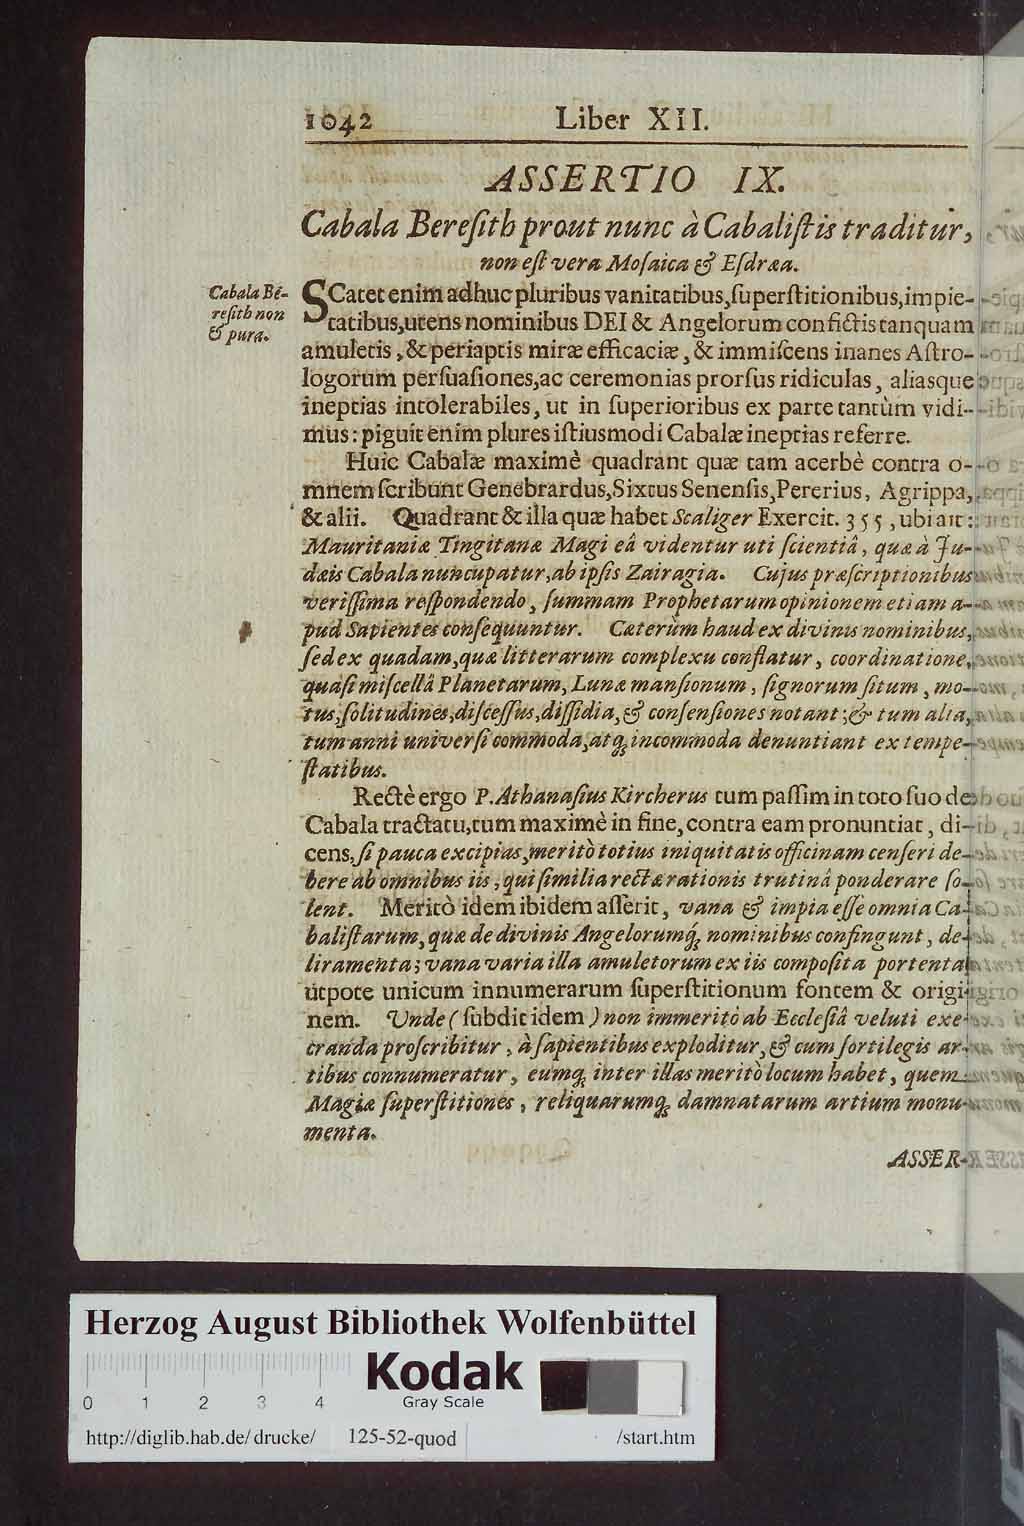 1042 Liber XII.
ASSERTIO IX.
Cabala Bereſith prout nunc à Cabaliſtis traditur,
non eſt vera Moſaica & Eſdræa.
Cabala Be-
reſith non
& pura.
SCatet enim adhuc pluribus vanitatibus, ſuperſtitionibus, impie-
tatibus, utens nominibus DEI & Angelorum confictis tanquam
amuletis, & periaptis miræ efficaciæ, & immiſcens inanes Aſtro-
logorum perſuaſiones, ac ceremonias prorſus ridiculas, aliasque
ineptias intolerabiles, ut in ſuperioribus ex parte tantùm vidi-
mus: piguit enim plures iſtiusmodi Cabalæ ineptias referre.
Huic Cabalæ maximè quadrant quæ tam acerbè contra o-
mnem ſcribunt Genebrardus, Sixtus Senenſis, Pererius, Agrippa,
& alii. Quadrant & illa quæ habet Scaliger Exercit. 355, ubi ait:
Mauritaniæ Tingitanæ Magi eâ videntur uti ſcientiâ, quæ à Ju-
dæis Cabala nuncupatur, ab ipſis Zairagia. Cujus præſcriptionibus
veriſſima reſpondendo, ſummam Prophetarum opinionem etiam a-
pud Sapientes conſequuntur. Cæterùm haud ex divinis nominibus,
ſed ex quadam, quæ litterarum complexu conflatur, coordinatione,
quaſi miſcellâ Planetarum, Lunæ manſionum, ſignorum ſitum, mo-
tus, ſolitudines, diſceſſus, diſſidia, & conſenſiones notant; & tum alia,
tum anni univerſi commoda, atq; incommoda denuntiant ex tempe-
ſtatibus.
Rectè ergo P. Athanaſius Kircherus tum paſſim in toto ſuo de
Cabala tractatu, tum maximè in fine, contra eam pronuntiat, di-
cens, ſi pauca excipias, meritò totius iniquitatis officinam cenſeri de-
bere ab omnibus iis, qui ſimilia rectæ rationis trutinâ ponderare ſo-
lent. Meritò idem ibidem aſſerit, vana & impia eſſe omnia Ca-
baliſtarum, quæ de divinis Angelorumq́; nominibus confingunt, de-
liramenta; vana varia illa amuletorum ex iis compoſita portenta
utpote unicum innumerarum ſuperſtitionum fontem & origi-
nem. Unde (ſubdit idem) non immeritò ab Eccleſiâ veluti exe-
cranda proſcribitur, à ſapientibus exploditur, & cum ſortilegis ar-
tibus connumeratur, eumq; inter illas meritò locum habet, quem
Magiæ ſuperſtitiones, reliquarumq; damnatarum artium monu-
menta.
ASSER-
Herzog August Bibliothek Wolfenbüttel
Kodak
Gray Scale
0 1 2 3 4
http://diglib.hab.de/drucke/ 125-52-quod /start.htm